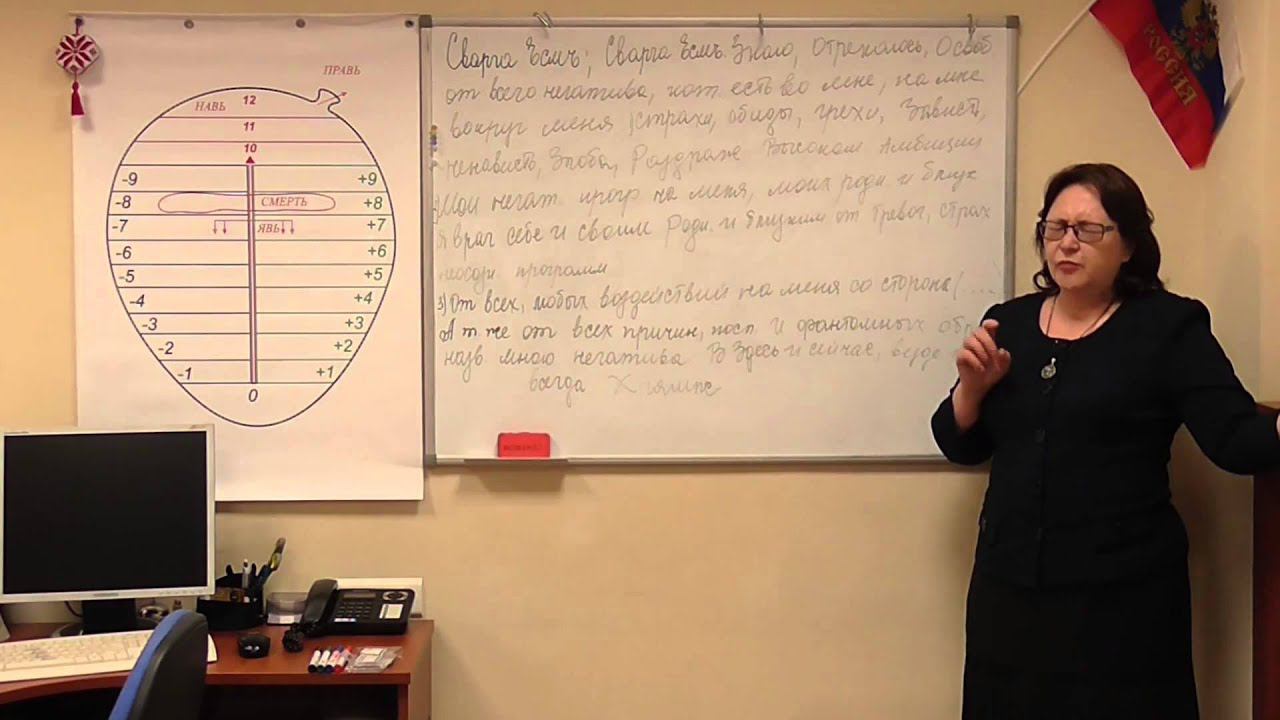 ПРАВЬ
НАВЬ 12
11
10
-9 +9
-8 СМЕРТЬ +8
-7 ЯВЬ +7
-6 +6
-5 +5
-4 +4
-3 +3
-2 +2
-1 +1
0
Сварга Есмъ; Сварга Есмъ. Знаю, Отрекаюсь, Освоб
от всего негатива, кот есть во мне, на мне
вокруг меня (страхи, обиды, грехи, Зависть,
ненависть, Злоба, Раздраже Высоком Амбиции
негат. прогр на меня, моих роди. и близк
Я враг себе и своим Роди. и близким от тревог, страх
программ
3) От всех, любых воздействий на меня со стороны (....
А т же от всех причин, посл. и фантомных обр
назв мною негатива В Здесь и сейчас, везде
всегда
РОССИЯ